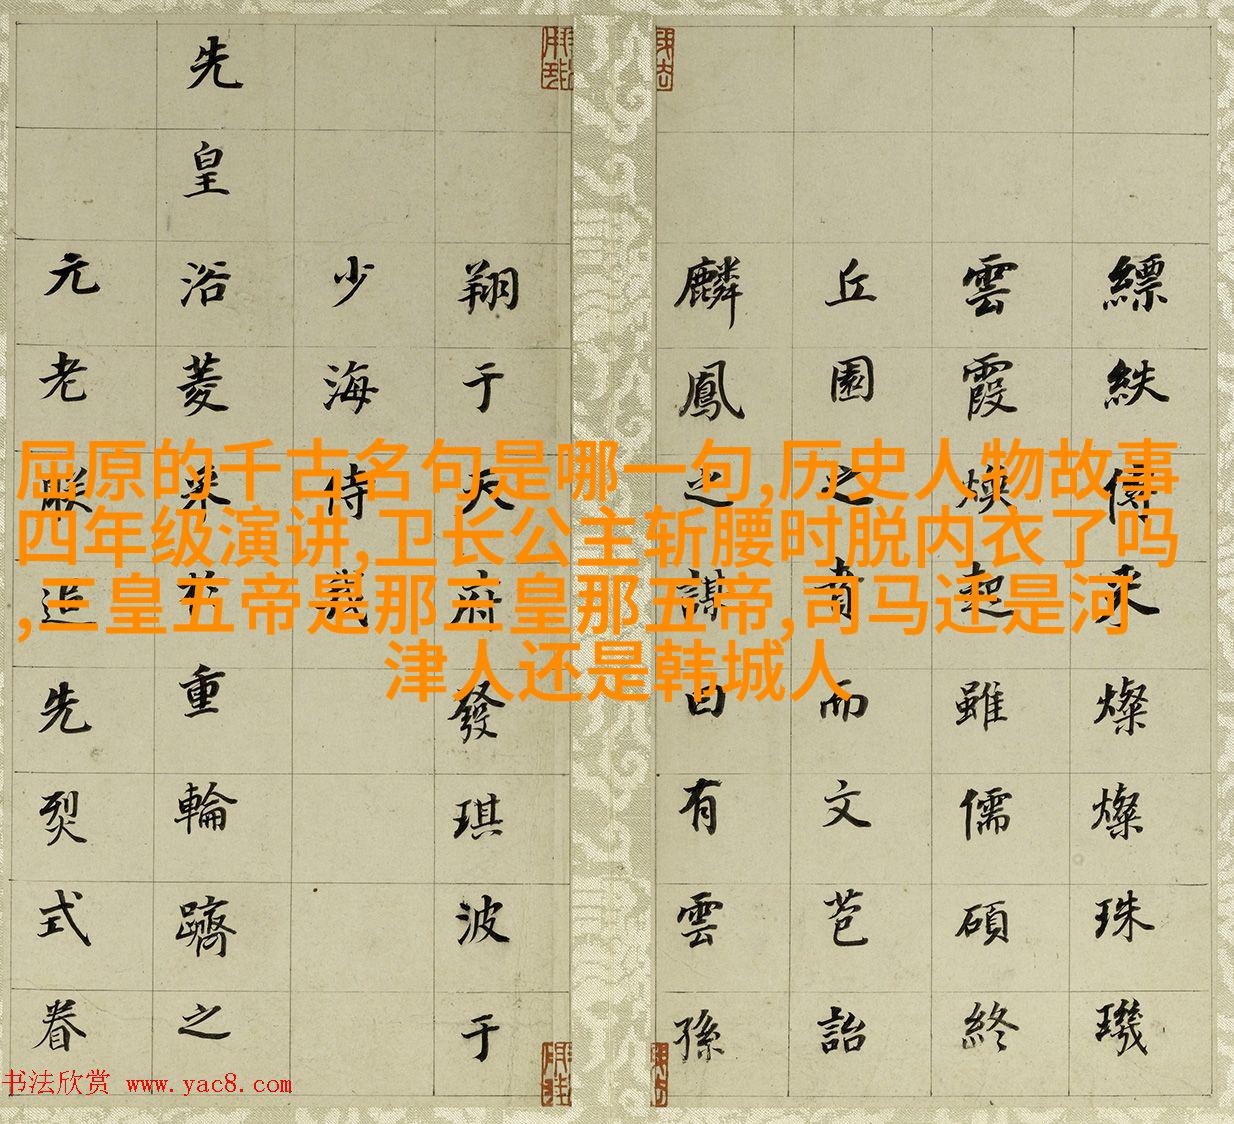 縹帙傳來燦燦珠璣
雲霞煥起雖儒碩終
丘園之賁而文芑詒
麟鳳之謀自有雲孫
翔于天府發琪波于
少海侍義
先皇浴菱采於重輪躋之
元老厭近先烈式眷
屈原的千古名句是哪一句,历史人物故事
四年级演讲,卫长公主斩腰时脱内衣了吗
,三皇五帝是那三皇那五帝,司马迁是河
津人还是韩城人
书法欣赏 www.yac8.com